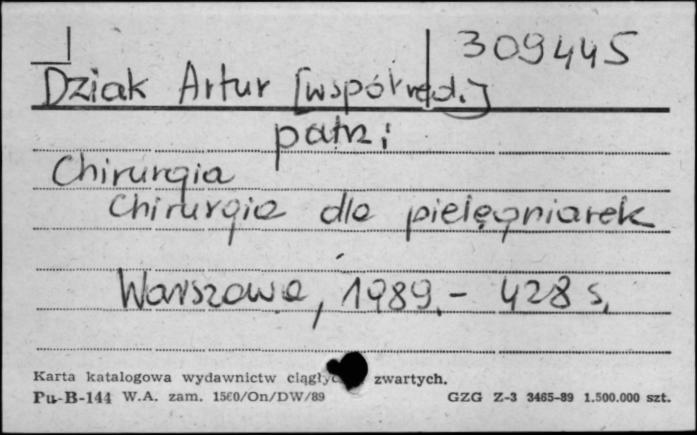 309445
Dziak Artur [współred.]
patrz:
Chirurgia
Chirurgia dla pielęgniarek
Warszawa, 1989. - 428 s.
Karta katalogowa wydawnictw zwartych.
Pu-B-144 W.A. zam. 1560/On/DW/89 GZG Z-3 3465-89 1.500.000 szt.